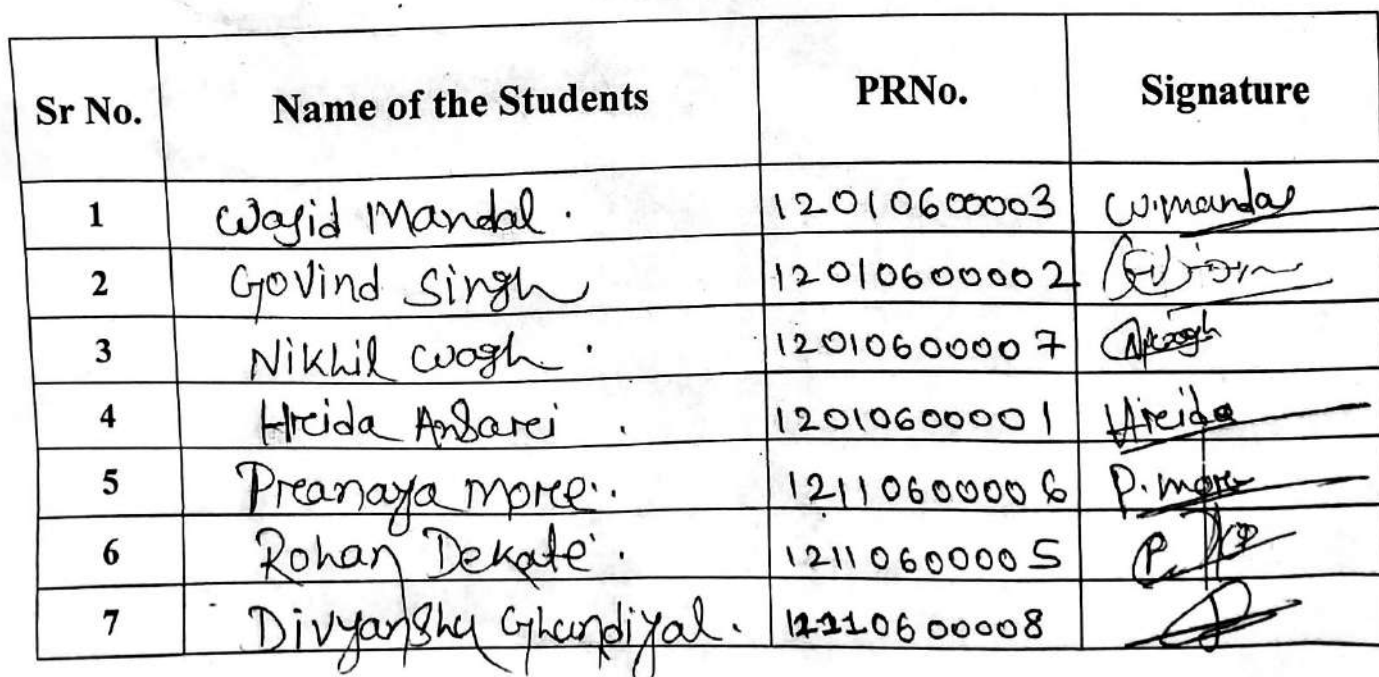 Sr No. Name of the Students PRNo. Signature
1 Wasid Mandal. 12010600003 W.mandal
2 Govind Singh 12010600002
3 Nikhil Wagh. 12010600007
4 Hreida Ansarei. 12010600001 Hreida
5 Preanaya more. 12110600006 P. more
6 Rohan Dekate. 12110600005
7 Divyanshu Ghundiyal. 12210600008